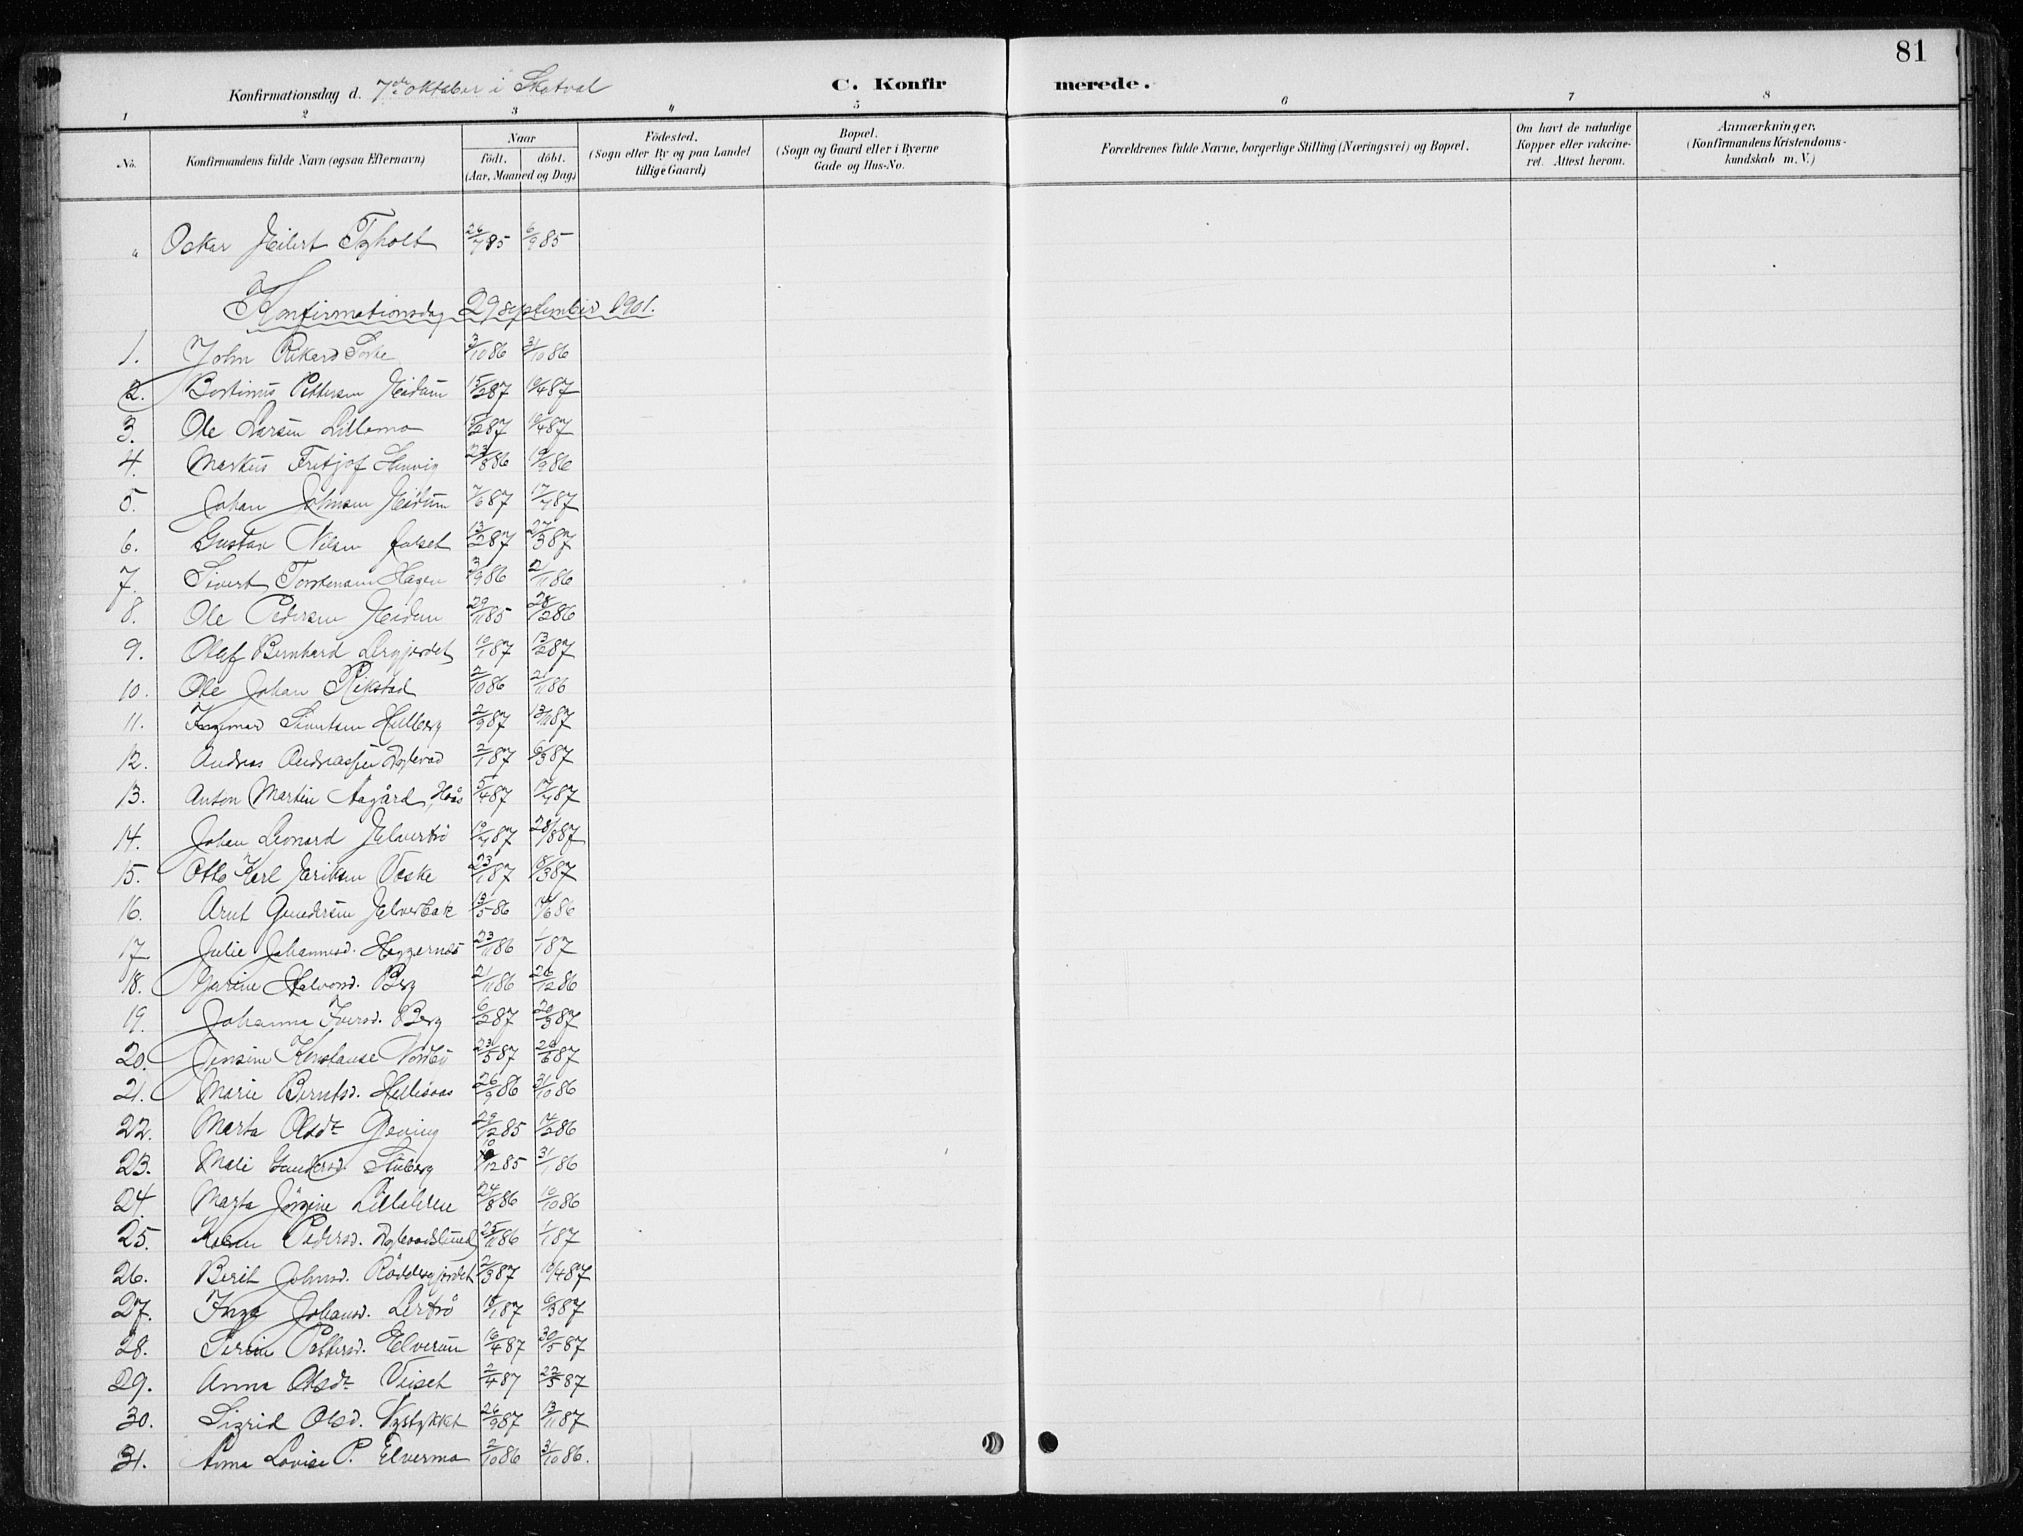 81
Konfirmationsdag d. 7de oktober i Skatval
C. Konfir merede.
1 2 3 4 5 6 7 8
No.
Konfirmandens fulde Navn (ogsaa Efternavn)
Naar
födt. döbt.
(Aar, Maaned og Dag)
Födested.
(Sogn eller By og paa Landet
tillige Gaard)
Bopæl.
(Sogn og Gaard eller i Byerne
Gade og Hus-No.
Forældrenes fulde Navne, borgerlige Stilling (Næringsvei) og Bopæl.
Om havt de naturlige
Kopper eller vakcine-
ret. Attest herom.
Anmærkninger.
(Konfirmandens Kristendoms-
kundskab m. V.)
" Oskar Heilert Fzholt 26/7 85 6/9 85
Konfirmationsdag 29 september 1901.
1. John Rikard 3/10 86 31/10 86
2. Pettersen Heidum 15/2 87 10/4 87
3. Ole Larsen Lillemo 15/2 87 10/4 87
4. Markus Fritjof 23/8 86 19/9 86
5. Johan Johnsen Heidum 7/6 87 17/7 87
6. Gustav Nilsen 13/2 87 27/3 87
7. Sivert Torstensen Hagen 3/9 86 21/11 86
8. Ole Pedersen Heidum 29/11 85 28/12 86
9. Olaf Bernhard Lergjerdet 10/1 87 13/2 87
10. Ole Johan Rikstad 2/10 86 21/11 86
11. Ingemar Sivertsen Hellberg 2/9 87 13/11 87
12. Andreas Andreassen 2/1 87 6/3 87
13. Anton Martin Aagård, Haas 5/4 87 17/4 87
14. Johan Leonard 10/7 87 28/8 87
15. Otto Karl 23/1 87 18/3 87
16. Arnt Gundersen 13/5 86 14/6 86
17. Julie Johannesd. 23/11 86 1/1 87
18. Halvorsd. Berg 21/11 86 26/12 86
19. Johanna Iversd. Berg 6/2 87 20/3 87
20. Jensine Konstanse 23/5 87 26/6 87
21. Marie Berntsd. 26/9 86 31/10 86
22. Marta Olsdt. 29/12 85 14/2 86
23. Mali Gundersd. Stuberg 10/12 85 31/1 86
24. Marta Jörgine 24/8 86 10/10 86
25. Pedersd. 25/11 86 1/1 87
26. Berit Johnsd. 2/3 87 10/4 87
27. Inga Johansd. Lertrö 18/1 87 6/3 87
28. Pettersd. Elverum 10/4 87 30/5 87
29. Anna Olsdt. Vaiset 2/4 87 22/5 87
30. Sigrid Olsd. Nystykket 26/9 87 13/11 87
31. Anna Lovise P. 2/10 86 31/10 86.